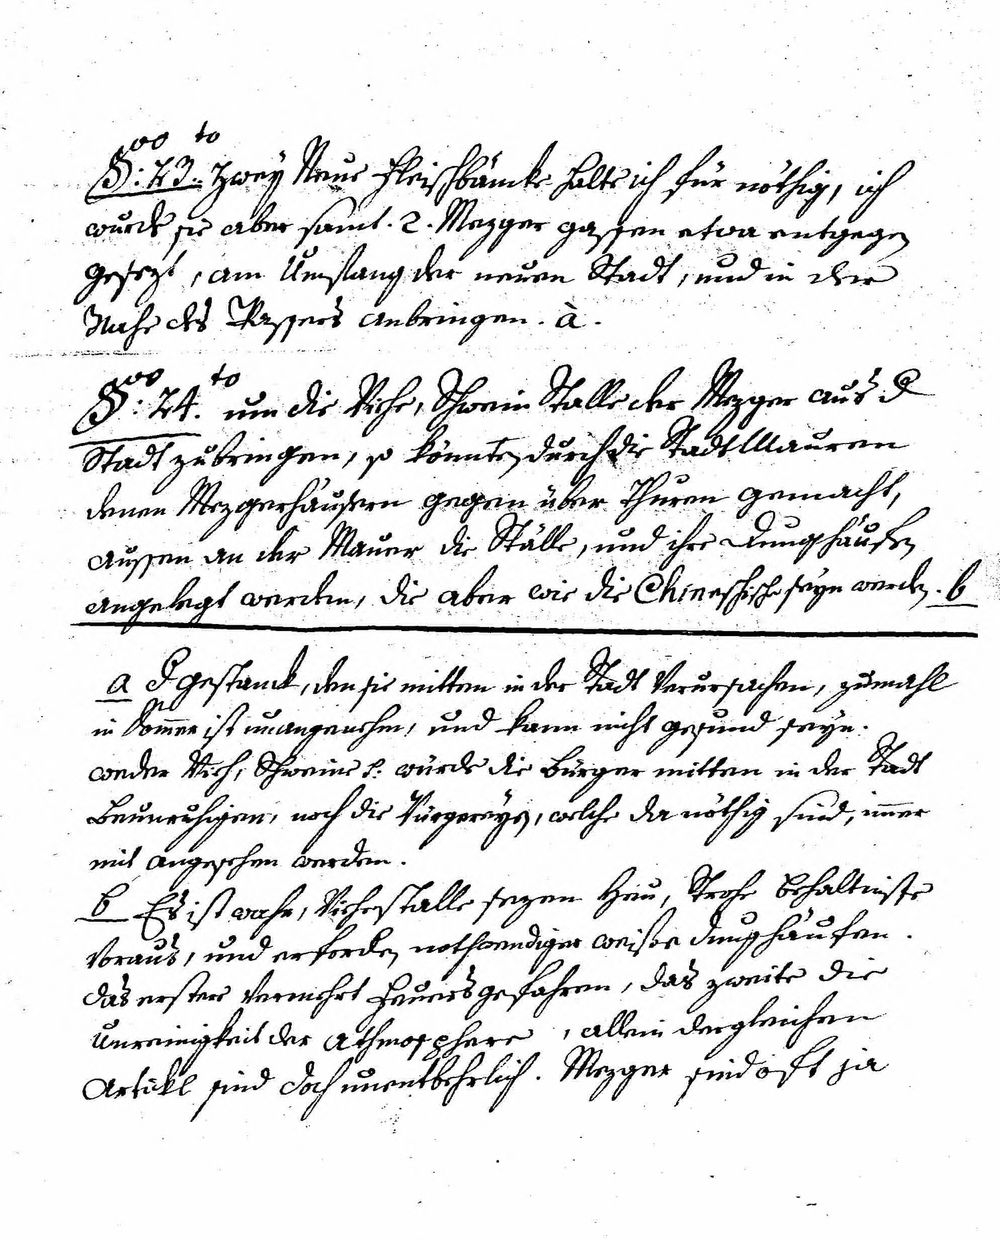 §:oo 23.to Zwey Neue Fleischbänke halte ich für nöthig, ich
wurde sie aber samt. 2. Mezger gassen etwa entgegen
gesezt, am Umfang der neuen Stadt, und in der
Nahe des Wassers anbringen. a.
§:oo 24.to um die Viehe, Schwein Stalle der Mezger aus d
Stadt zubringen, so könnten durch die Stadt Mauren
denen Mezgerhäusern gegen über Thuren gemacht,
aussen an der Mauer die Ställe, und ihre Dunghäufen
angelegt werden, die aber wie die Chinesische seyn werden. b
a D gestanck, den sie mitten in der Stadt verursachen, zumahl
in Somer ist unangenehm, und kann nicht gesund seyn.
weder Vieh, Schweine würde die Bürger mitten in der Stadt
Beunruhigen, noch die welche da nöthig sind, imer
mit angesehen werden.
b Es ist wahr, Viehestalle sezen Heu, Strohe behaltnisse
voraus, und erforden nothwendiger weise dunghäufen.
das erstere vermehrt Feuersgefahren, das zweite die
Unreinigkeit der Athmosphere, allein dergleichen
Artickl sind doch unentbehrlich. Mezger sind oft ja